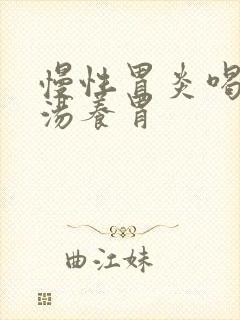 慢性胃炎喝
汤养胃
曲江妹